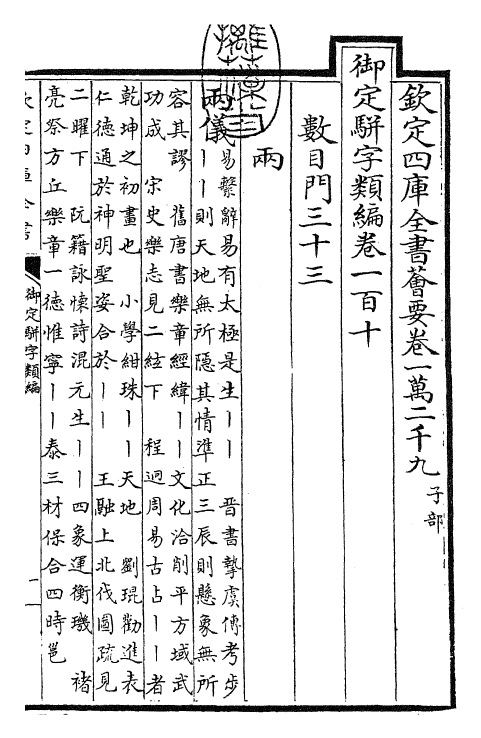 欽定四庫全書薈要卷一萬二千九 子部
御定駢字類編卷一百十
數目門三十三
兩
兩儀 易繫辭易有太極是生丨丨 晉書摯虞傳考步
丨丨則天地無所隱其情準正三辰則懸象無所
容其謬 舊唐書樂章經緯丨丨文化洽削平方域武
功成 宋史樂志見二絃下 程迥周易古占丨丨者
乾坤之初畫也 小學紺珠丨丨天地 劉琨勸進表
仁德通於神明聖姿合於丨丨 王融上北伐圖疏見
二曜下 阮籍詠懷詩混元生丨丨四象運衡璣 褚
亮祭方丘樂章一德惟寧丨丨泰三材保合四時邕
欽定四庫全書
御定駢字類編
一